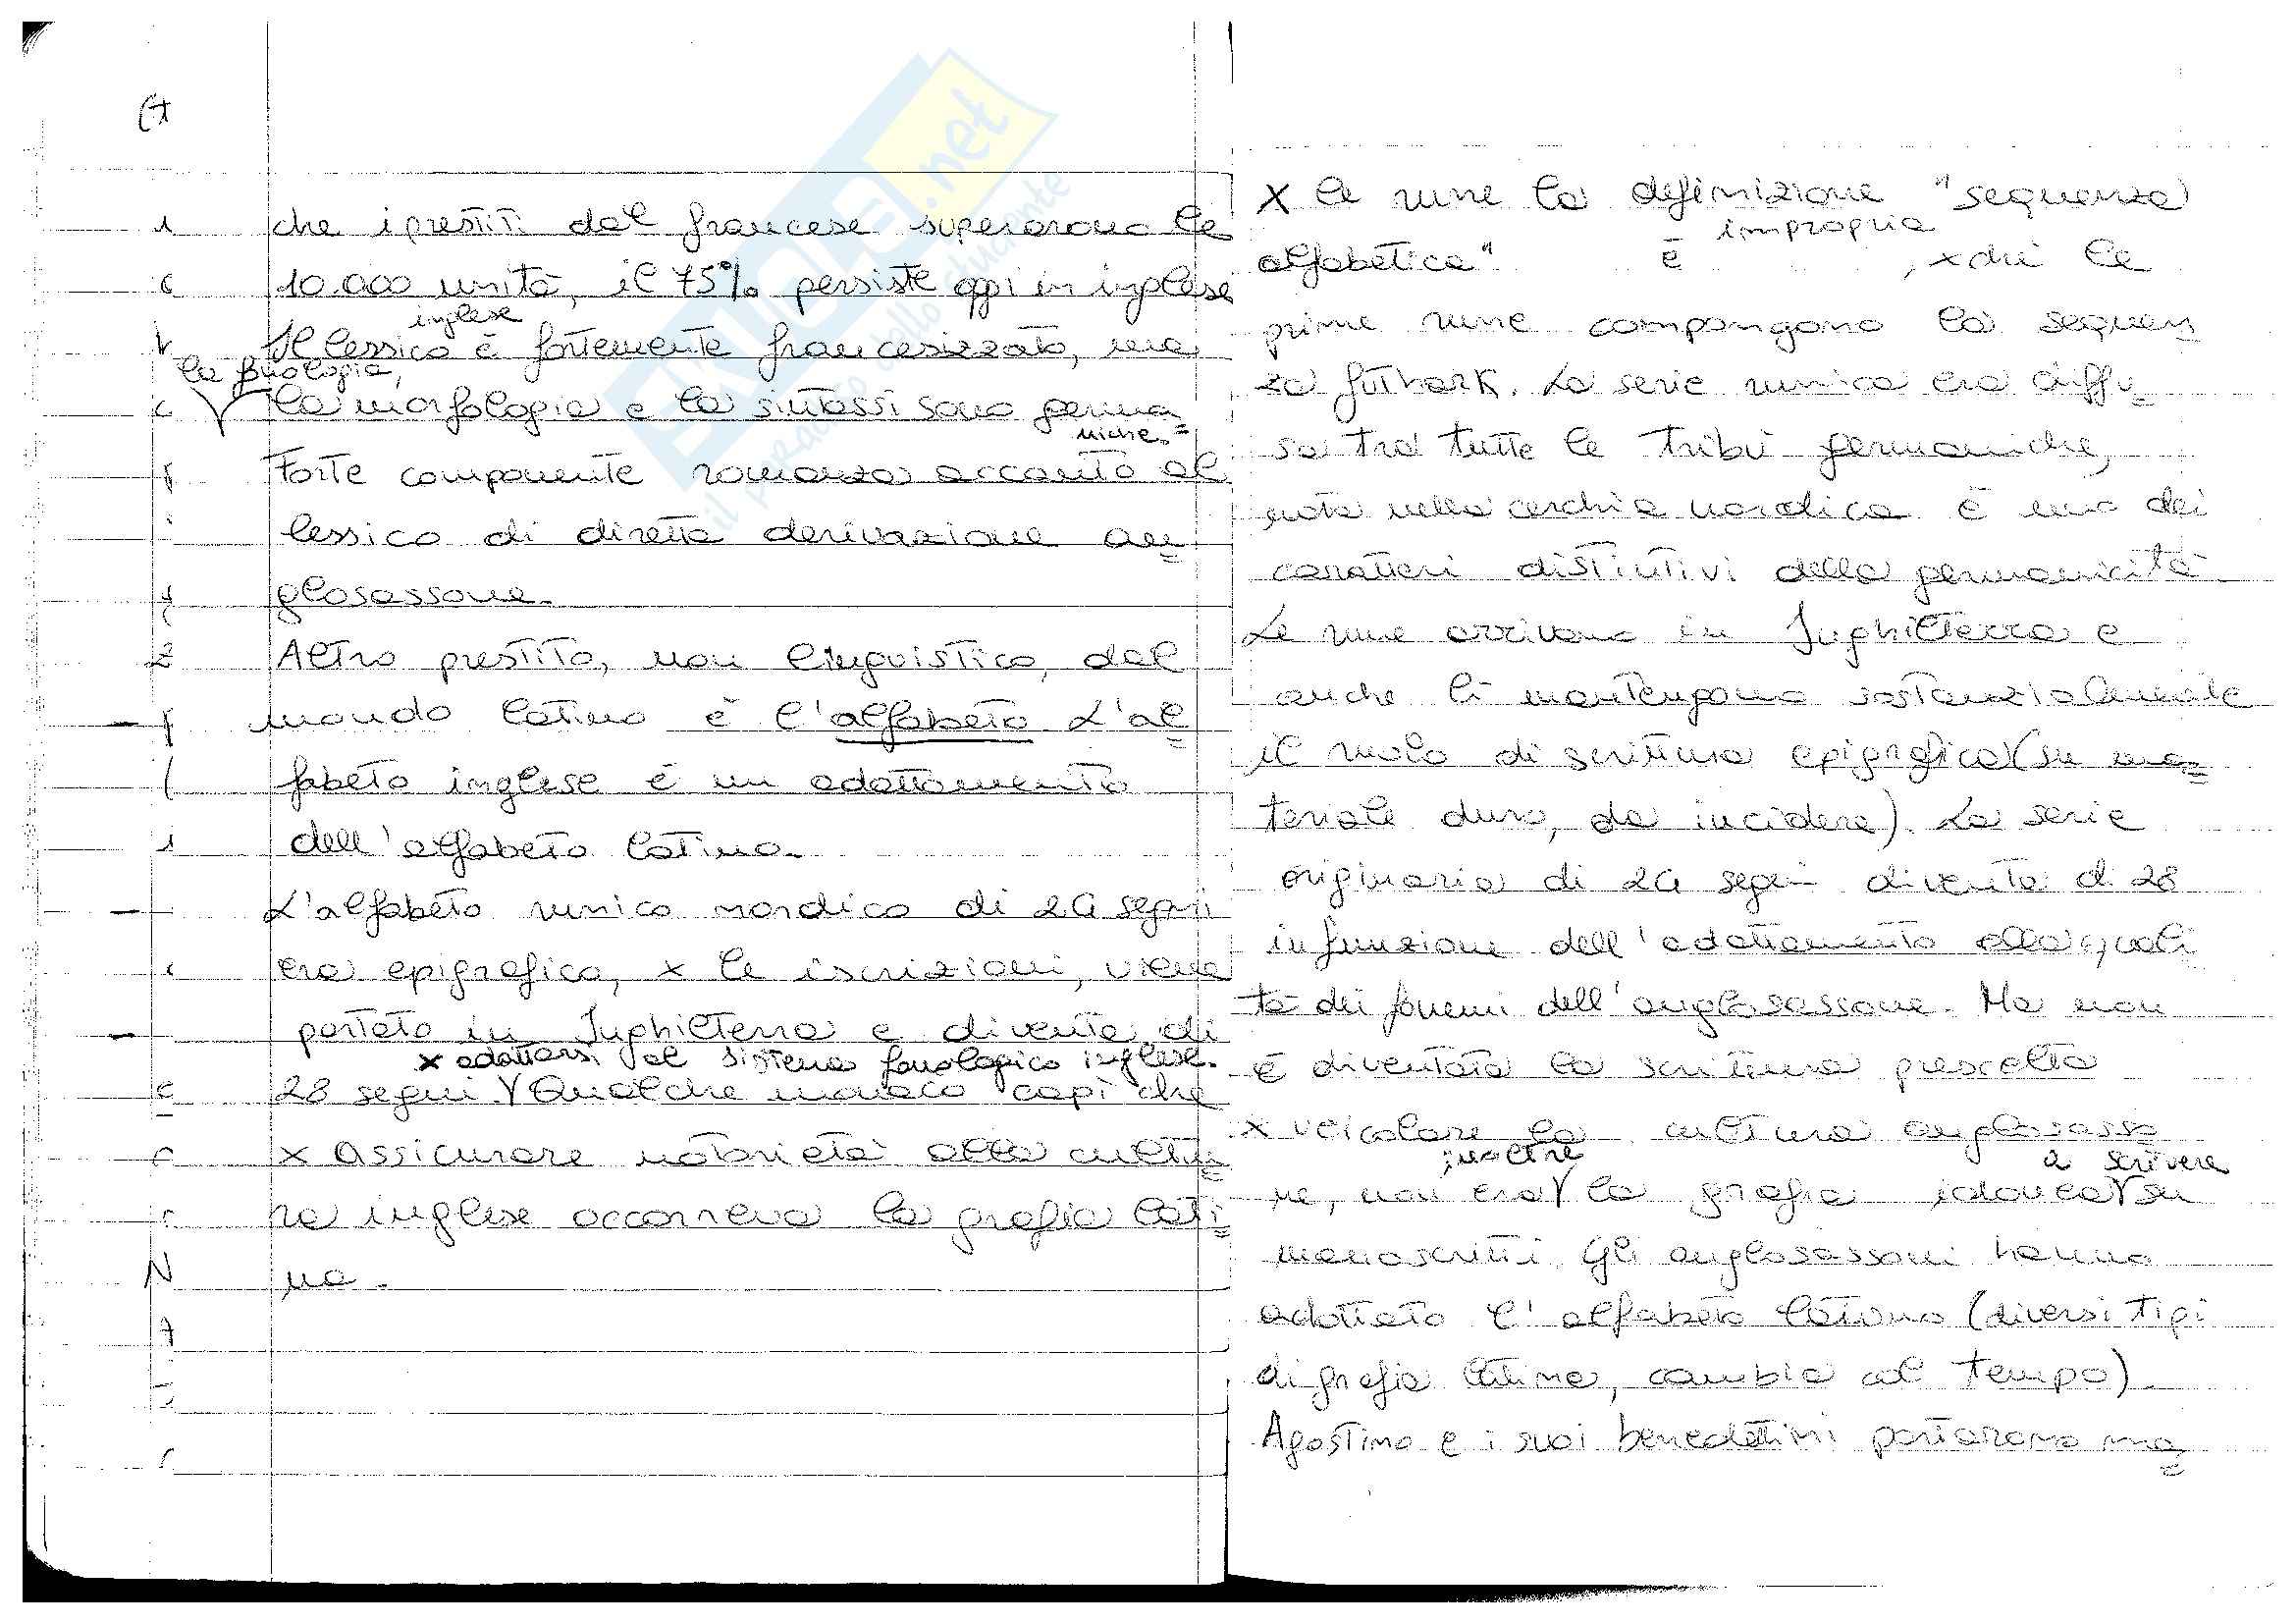 che i prestiti dal francese superarono le
10.000 unità, il 75% persiste oggi in inglese
inglese
Il lessico è fortemente francesizzato, ma
la fonologia,
la morfologia e la sintassi sono germa=
niche.
Forte componente romanza accanto al
lessico di diretta derivazione an=
glosassone.
Altro prestito, non linguistico, dal
mondo latino è l'alfabeto. L'al=
fabeto inglese è un adattamento
dell'alfabeto latino.
L'alfabeto runico nordico di 24 segni
era epigrafico, x le iscrizioni, viene
portato in Inghilterra e diventa di
x adattarsi al sistema fonologico inglese.
28 segni. Qualche monaco capì che
x assicurare notorietà alla cultu=
ra inglese occorreva la grafia lati=
na.
X le rune la definizione "sequenza
impropria
alfabetica" è , xchè le
prime rune compongono la sequen=
za futhark. La serie runica era diffu=
sa tra tutte le tribù germaniche,
nota nella cerchia nordica è uno dei
caratteri distintivi della germanicità.
Le rune arrivano in Inghilterra e
anche lì mantengono sostanzialmente
il ruolo di scrittura epigrafica (su ma=
teriale duro, da incidere). La serie
originaria di 24 segni diventa di 28
in funzione dell'adattamento alla quali
tà dei fonemi dell'anglosassone. Ma non
è diventata la scrittura prescelta
x veicolare la cultura anglosasso
inoltre a scrivere
ne, non era la grafia idonea su
manoscritti. Gli anglosassoni hanno
adottato l'alfabeto latino (diversi tipi
di grafia latina, cambia col tempo).
Agostino e i suoi benedettini portarono ma=
il paradiso dello studente
.net